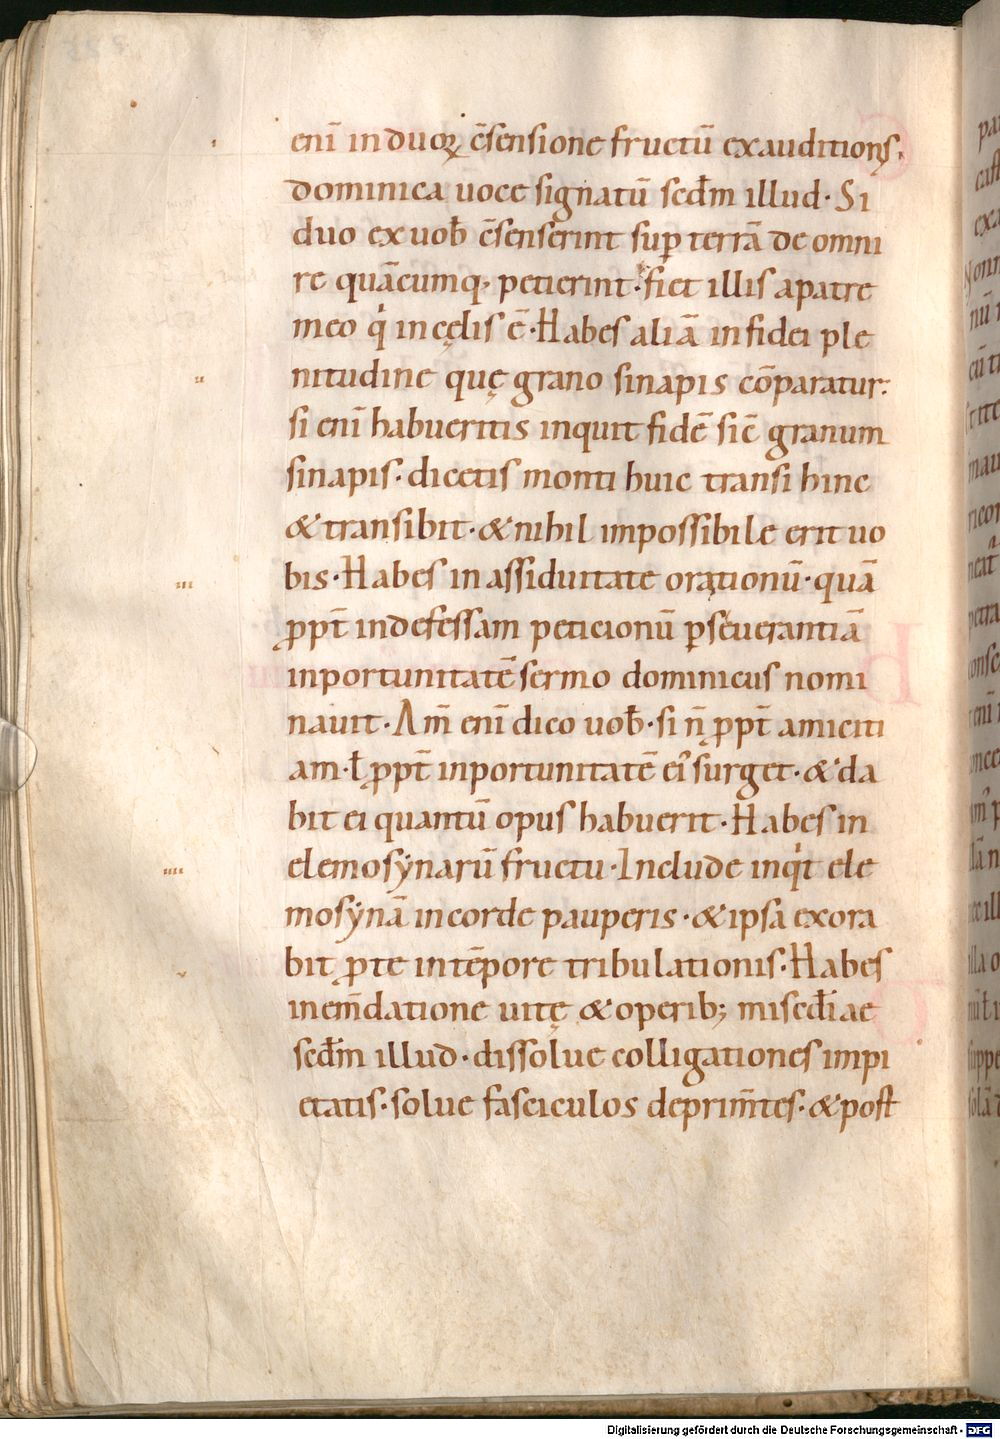 enī in duoꝝ c̄sensione fructū exauditionis.
dominica uoce signatū scd̄m illud· Si
duo ex uob̄ c̄senserint suꝑ terrā de omni
re quācumq; petierint· fiet illis a patre
meo q̇ in cęlis ē· Habes aliā in fidei ple
nitudine quę grano sinapis cōparatur:
si enī habueritis inquit fidē sic̄ granum
sinapis· dicetis monti huic transi hinc
& transibit· & nihil impossibile erit uo
bis· Habes in assiduitate orationū· quā
ꝓpt̄ indefessam peticionū ꝑseuerantiā
inportunitatē sermo dominicus nomi
nauit· Am̄ enī dico uob̄· si n̄ ꝓpt̄ amiciti
am· ł ꝓpt̄ inportunitatē eı᾽ surget· & da
bit ei quantū opus habuerit· Habes in
elemosẏnarū fructu· Include inq̇t ele
mosẏnā in corde pauperis· & ipsa exora
bit ꝓ te in tēpore tribulationis· Habes
in em̄datione uitę & operib; misc̄diae
scd̄m illud· dissolue colligationes impi
etatis· solue fasciculos deprim̄tes· & post
Digitalisierung gefördert durch die Deutsche Forschungsgemeinschaft - DFG